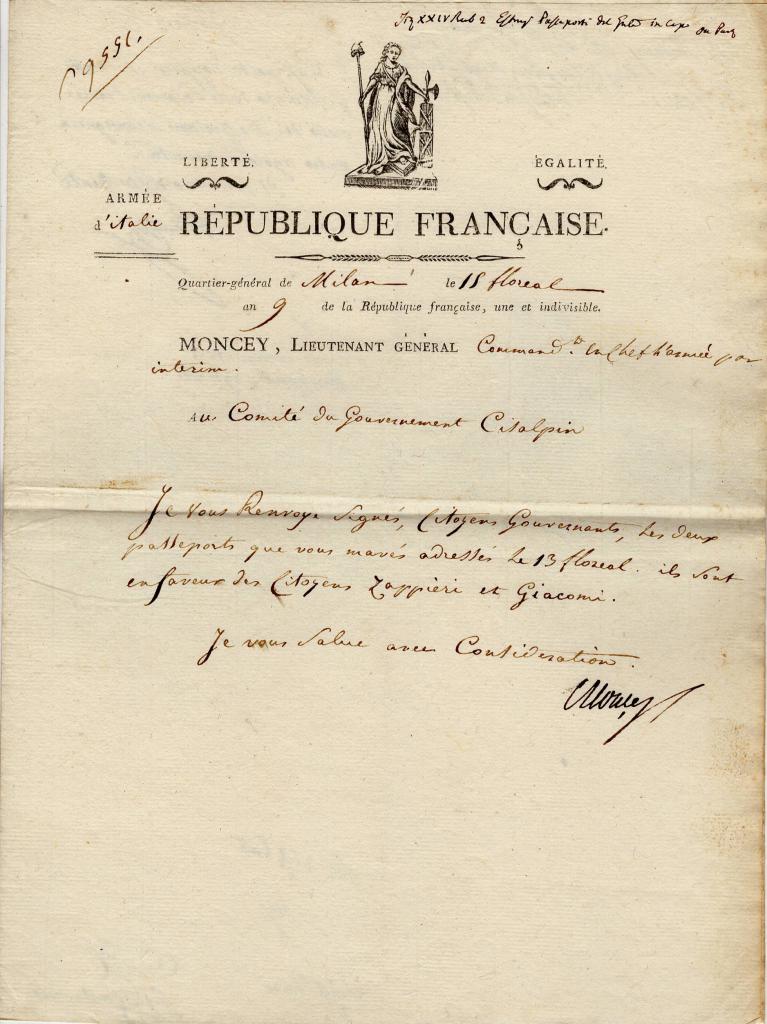 XXIV Rub 2 Passaporti del in capo
9551.
LIBERTÉ. EGALITÉ.
ARMÉE
d'italie
RÉPUBLIQUE FRANÇAISE.
Quartier-général de Milan le 15 floreal
an 9 de la République française, une et indivisible.
MONCEY, LIEUTENANT GÉNÉRAL Command.t en Chef l'armée par
interim.
Au Comité du Gouvernement Cisalpin
Je vous Renvoye signés, Citoyens Gouvernants, les deux
passeports que vous mavés adressés le 13 floreal. ils sont
en faveur des Citoyens Zappieri et Giacomi.
Je vous salue avec Consideration.
Moncey